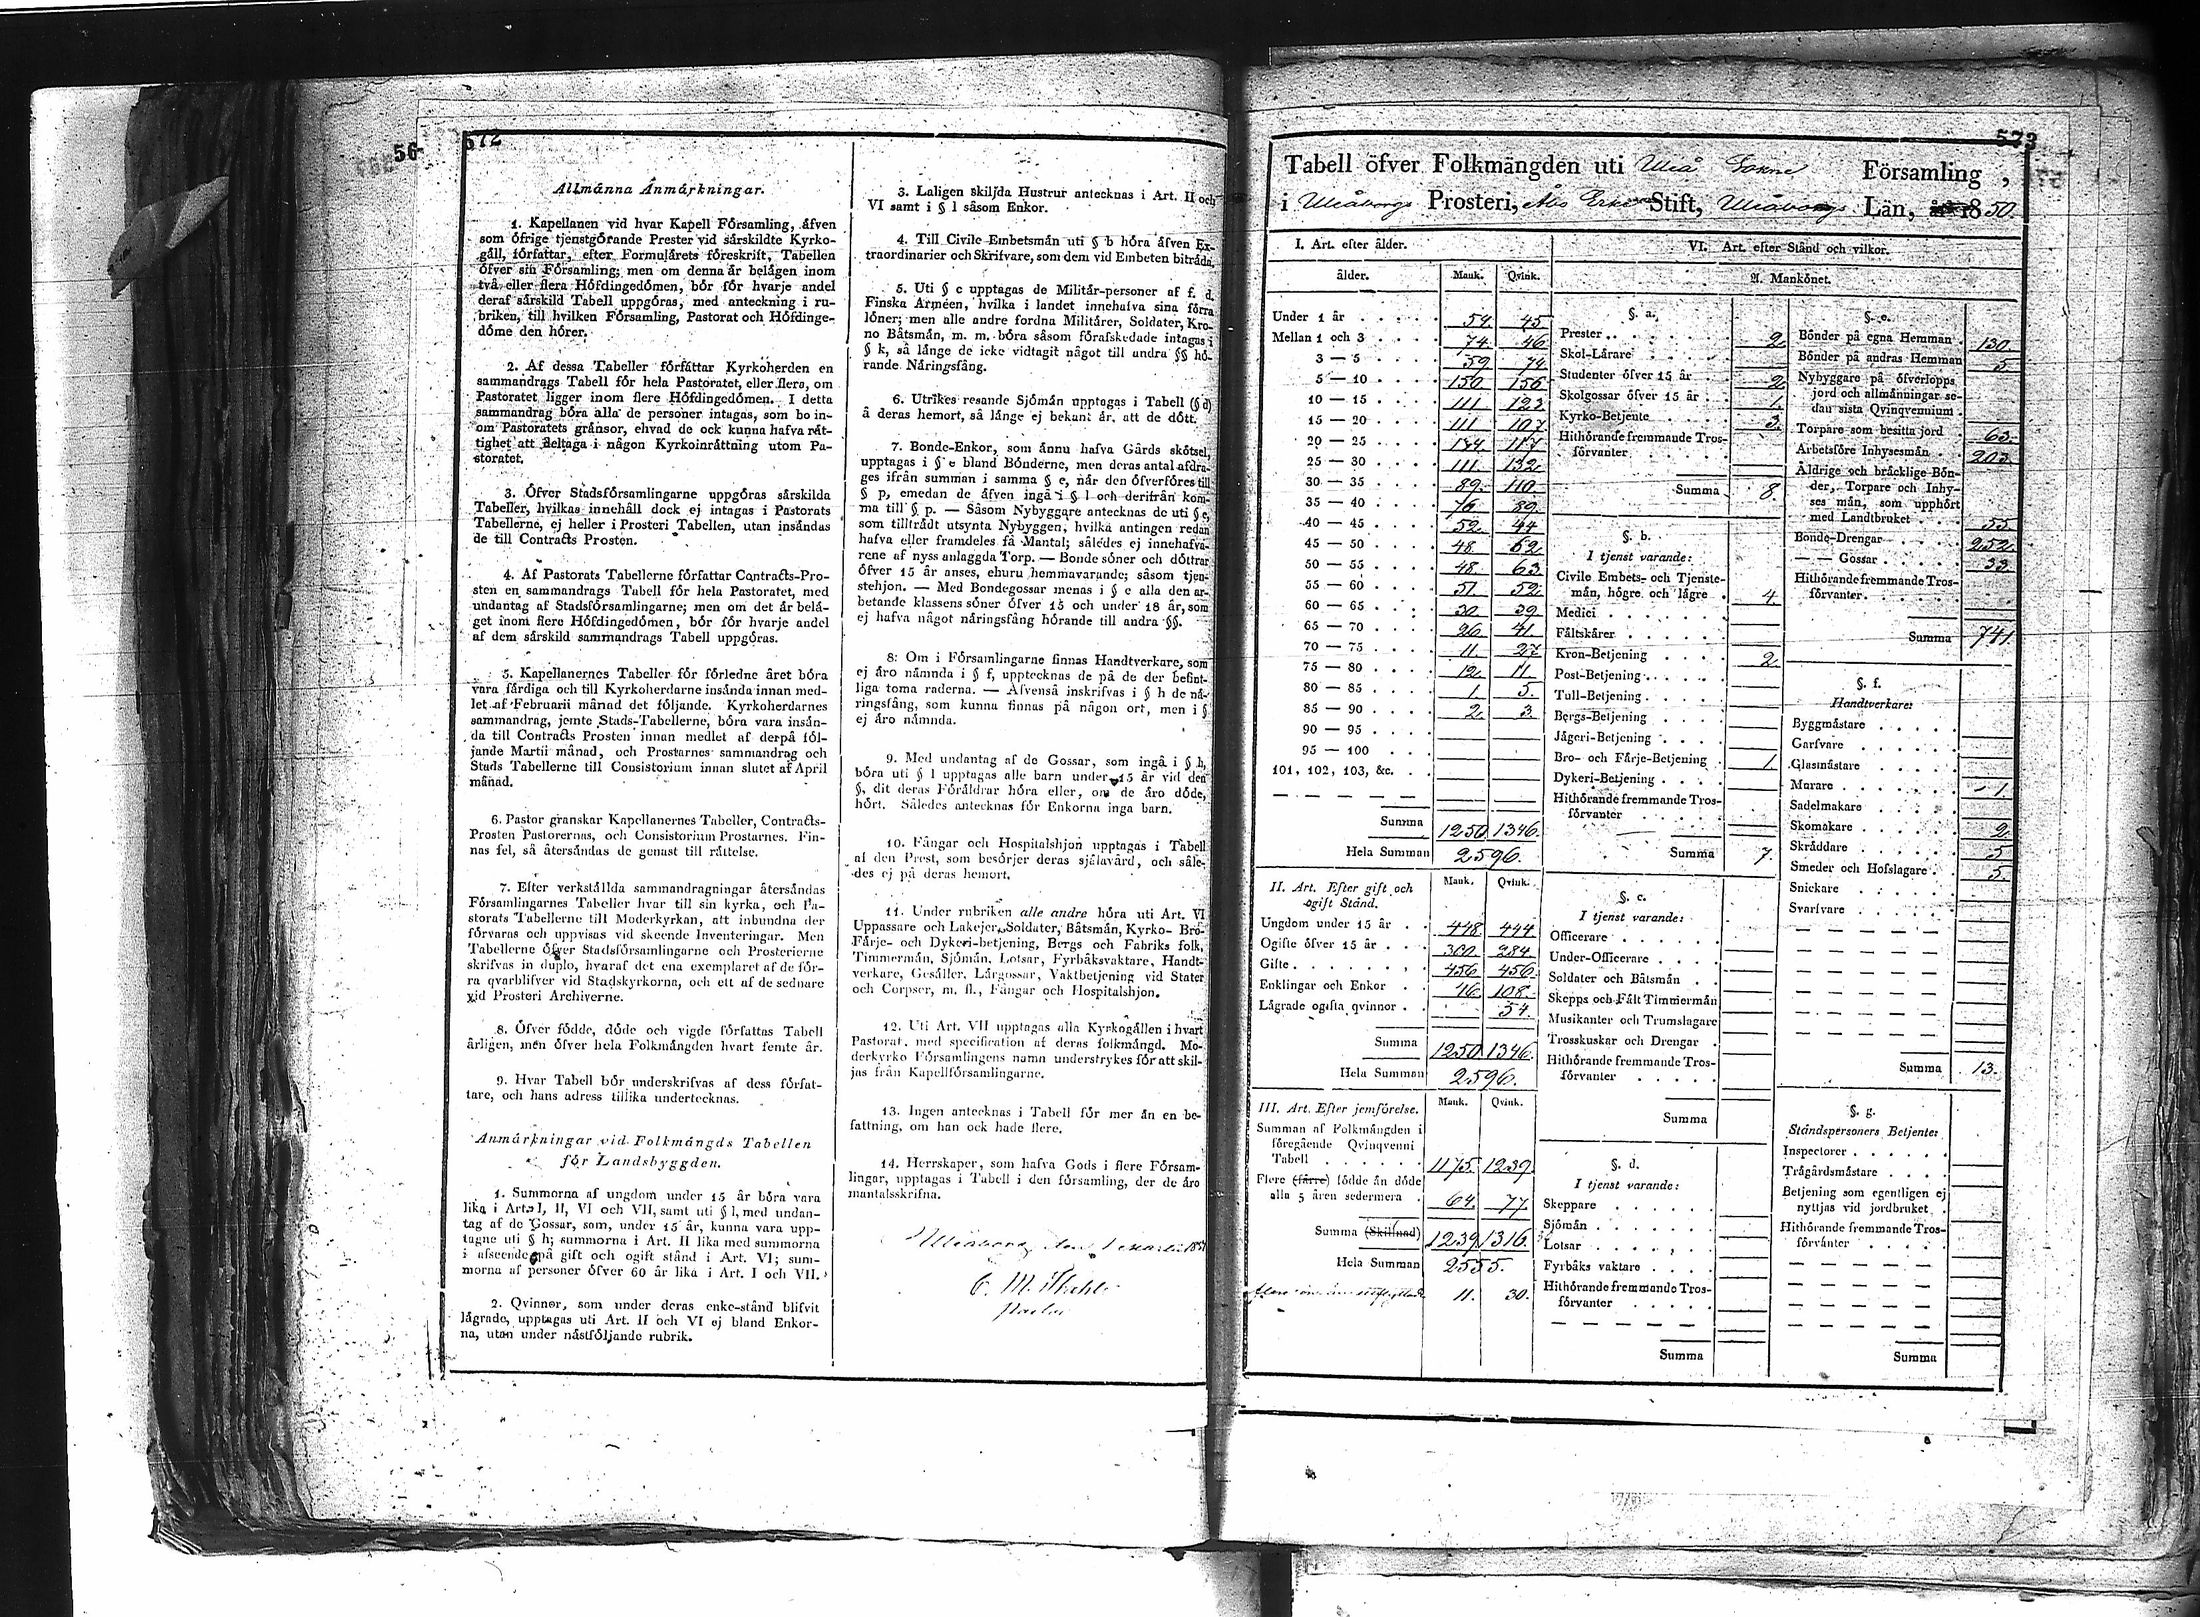 56
572
Allmänna Anmärkningar.
1. Kapellanen vid hvar Kapell Församling, äfven
som öfrige tjenstgörande Prester vid särskildte Kyrko-
gåll, författar, efter Formulärets föreskrift, Tabellen
öfver sin Församling; men om denna är belägen inom
två eller flera Höfdingedömen, bör för hvarje andel
deraf särskild Tabell uppgöras, med anteckning i ru-
briken, till hvilken Församling, Pastorat och Höfdinge-
döme den hörer.
2. Af dessa Tabeller författar Kyrkoherden en
sammandrags Tabell för hela Pastoratet, eller flera, om
Pastoratet ligger inom flere Höfdingedömen. I detta
sammandrag böra alla de personer intagas, som bo in-
om Pastoratets gränsor, ehvad de ock kunna hafva rät-
tighet att deltaga i någon Kyrkoinrättning utom Pa-
storatet.
3. Öfver Stadsförsamlingarne uppgöras särskilda
Tabeller, hvilkas innehåll dock ej intagas i Pastorats
Tabellerne, ej heller i Prosteri Tabellen, utan insändas
de till Contracts Prosten.
4. Af Pastorats Tabellerne författar Contracts-Pro-
sten en sammandrags Tabell för hela Pastoratet, med
undantag af Stadsförsamlingarne; men om det är belä-
get inom flere Höfdingedömen, bör för hvarje andel
af dem särskild sammandrags Tabell uppgöras.
5. Kapellanernes Tabeller för förledne året böra
vara färdiga och till Kyrkoherdarne insända innan med-
let af Februarii månad det följande. Kyrkoherdarnes
sammandrag, jemte Stads-Tabellerne, böra vara insän-
da till Contracts Prosten innan medlet af derpå föl-
jande Martii månad, och Prostarnes sammandrag och
Stads Tabellerne till Consistorium innan slutet af April
månad.
6. Pastor granskar Kapellanernes Tabeller, Contracts-
Prosten Pastorernas, och Consistorium Prostarnes. Fin-
nas fel, så återsändas de genast till rättelse.
7. Efter verkställda sammandragningar återsändas
Församlingarnes Tabeller hvar till sin kyrka, och Pa-
storats Tabellerne till Moderkyrkan, att inbundna der
förvaras och uppvisas vid skeende Inventeringar. Men
Tabellerne öfver Stadsförsamlingarne och Prosterierne
skrifvas in duplo, hvaraf det ena exemplaret af de för-
ra qvarblifver vid Stadskyrkorna, och ett af de sednare
vid Prosteri Archiverne.
8. Öfver födde, döde och vigde författas Tabell
årligen, men öfver hela Folkmängden hvart femte år.
9. Hvar Tabell bör underskrifvas af dess förfat-
tare, och hans adress tillika undertecknas.
Anmärkningar vid Folkmängds Tabellen
för Landsbyggden.
1. Summorna af ungdom under 15 år böra vara
lika i Art. I, II, VI och VII, samt uti § l, med undan-
tag af de Gossar, som, under 15 år, kunna vara upp-
tagne uti § h; summorna i Art. II lika med summorna
i afseende på gift och ogift stånd i Art. VI; sum-
morna af personer öfver 60 år lika i Art. I och VII.
2. Qvinnor, som under deras enke-stånd blifvit
lägrade, upptagas uti Art. II och VI ej bland Enkor-
na, utan under nästföljande rubrik.
3. Laligen skiljda Hustrur antecknas i Art. II och
VI samt i § l såsom Enkor.
4. Till Civile Embetsmän uti § b höra äfven Ex-
traordinarier och Skrifvare, som dem vid Embeten biträda.
5. Uti § c upptagas de Militär-personer af f. d.
Finska Arméen, hvilka i landet innehafva sina förra
löner; men alle andre fordna Militärer, Soldater, Kro-
no Båtsmän, m. m. böra såsom förafskedade intagas i
§ k, så länge de icke vidtagit något till andra §§ hö-
rande Näringsfång.
6. Utrikes resande Sjömän upptagas i Tabell (§ d)
å deras hemort, så länge ej bekant är, att de dött.
7. Bonde-Enkor, som ännu hafva Gårds skötsel,
upptagas i § e bland Bönderne, men deras antal afdra-
ges ifrån summan i samma § e, när den öfverföres till
§ p, emedan de äfven ingå i § l och derifrån kom-
ma till § p. — Såsom Nybyggare antecknas de uti § e,
som tillträdt utsynta Nybyggen, hvilka antingen redan
hafva eller framdeles få Mantal; således ej innehafva-
rene af nyss anlaggda Torp. — Bonde söner och döttrar
öfver 15 år anses, ehuru hemmavarande; såsom tjen-
stehjon. — Med Bondegossar menas i § e alla den ar-
betande klassens söner öfver 15 och under 18 år, som
ej hafva något näringsfång hörande till andra §§.
8: Om i Församlingarne finnas Handtverkare, som
ej äro nämnda i § f, upptecknas de på de der befint-
liga toma raderna. — Äfvenså inskrifvas i § h de nä-
ringsfång, som kunna finnas på någon ort, men i §
ej äro nämnda.
9. Med undantag af de Gossar, som ingå i § h,
böra uti § l upptagas alle barn under 15 år vid den
§, dit deras Föräldrar höra eller, om de äro döde,
hört. Således antecknas för Enkorna inga barn.
10. Fångar och Hospitalshjon upptagas i Tabell
af den Prest, som besörjer deras själavård, och såle-
des ej på deras hemort.
11. Under rubriken alle andre höra uti Art. VI
Uppassare och Lakejer, Soldater, Båtsmän, Kyrko- Bro-
Färje- och Dykeri-betjening, Bergs och Fabriks folk,
Timmermän, Sjömän, Lotsar, Fyrbåksvaktare, Handt-
verkare, Gesäller, Lärgossar, Vaktbetjening vid Stater
och Corpser, m. fl., Fångar och Hospitalshjon.
12. Uti Art. VII upptagas alla Kyrkogällen i hvart
Pastorat, med specification af deras folkmängd. Mo-
derkyrko Församlingens namn understrykes för att skil-
jas från Kapellförsamlingarne.
13. Ingen antecknas i Tabell för mer än en be-
fattning, om han ock hade flere.
14. Herrskaper, som hafva Gods i flere Försam-
lingar, upptagas i Tabell i den församling, der de äro
mantalsskrifna.
Uleåborg den 1 Martii 1851
573
Tabell öfver Folkmängden uti Uleå Sokne Församling,
i Uleåborgs Prosteri, Åbo Erke Stift, Uleåborgs Län, år 1850.
I. Art. efter ålder.
ålder. Mank. Qvink.
Under 1 år 54. 45.
Mellan 1 och 3 74. 46
3 — 5 59. 74.
5 — 10 150. 156
10 — 15 111. 123
15 — 20 111. 107.
20 — 25 134. 117
25 — 30 111. 132.
30 — 35 89. 110
35 — 40 76. 89.
40 — 45 52. 44
45 — 50 48. 62
50 — 55 48. 63
55 — 60 51. 52
60 — 65 30. 39.
65 — 70 26. 41.
70 — 75 11. 27
75 — 80 12. 11.
80 — 85 1. 5.
85 — 90 2. 3.
90 — 95
95 — 100
101, 102, 103, &c.
Summa 1250 1346.
Hela Summan 2596.
II. Art. Efter gift och ogift Stånd. Mank. Qvink.
Ungdom under 15 år 448. 444
Ogifte öfver 15 år 380. 284.
Gifte 456 456
Enklingar och Enkor 16. 108.
Lägrade ogifta qvinnor 54.
Summa 1250 1346.
Hela Summan 2596.
III. Art. Efter jemförelse. Mank. Qvink.
Summan af Folkmängden i
föregående Qvinqvenni
Tabell 1175. 1239.
Flere (färre) födde än döde
alla 5 åren sedermera 64. 77.
Summa (Skillnad) 1239. 1316.
Hela Summan 2555.
11. 30.
VI. Art. efter Stånd och vilkor.
A. Mankönet.
§. a.
Prester 2.
Skol-Lärare
Studenter öfver 15 år 2.
Skolgossar öfver 15 år 1.
Kyrko-Betjente 3.
Hithörande fremmande Tros-
förvanter
Summa 8.
§. b.
I tjenst varande:
Civile Embets- och Tjenste-
män, högre och lägre 4.
Medici
Fältskärer
Kron-Betjening 2
Post-Betjening
Tull-Betjening
Bergs-Betjening
Jägeri-Betjening
Bro- och Färje-Betjening 1.
Dykeri-Betjening
Hithörande fremmande Tros-
förvanter
Summa 7.
§. c.
I tjenst varande:
Officerare
Under-Officerare
Soldater och Båtsmän
Skepps och Fält Timmermän
Musikanter och Trumslagare
Trosskuskar och Drengar
Hithörande fremmande Tros-
förvanter
Summa
§. d.
I tjenst varande:
Skeppare
Sjömän
Lotsar
Fyrbåks vaktare
Hithörande fremmande Tros-
förvanter
Summa
§. e.
Bönder på egna Hemman 130.
Bönder på andras Hemman 5.
Nybyggare på öfverlopps
jord och allmänningar se-
dan sista Qvinqvennium
Torpare som besitta jord 63.
Arbetsföre Inhysesmän 203.
Äldrige och bräcklige Bön-
der, Torpare och Inhy-
ses män, som upphört
med Landtbruket 55.
Bonde-Drengar 252.
— — Gossar 33.
Hithörande fremmande Tros-
förvanter
Summa 741
§. f.
Handtverkare:
Byggmästare
Garfvare
Glasmästare
Murare 1.
Sadelmakare
Skomakare 2.
Skräddare 5
Smeder och Hofslagare 5.
Snickare
Svarfvare
Summa 13.
§. g.
Ståndspersoners Betjente:
Inspectorer
Trägårdsmästare
Betjening som egentligen ej
nyttjas vid jordbruket
Hithörande fremmande Tros-
förvanter
Summa